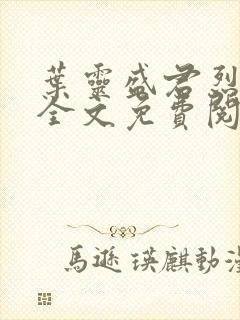 葉靈盛君烈
全文免費閱
馬遜瑛麒動漫